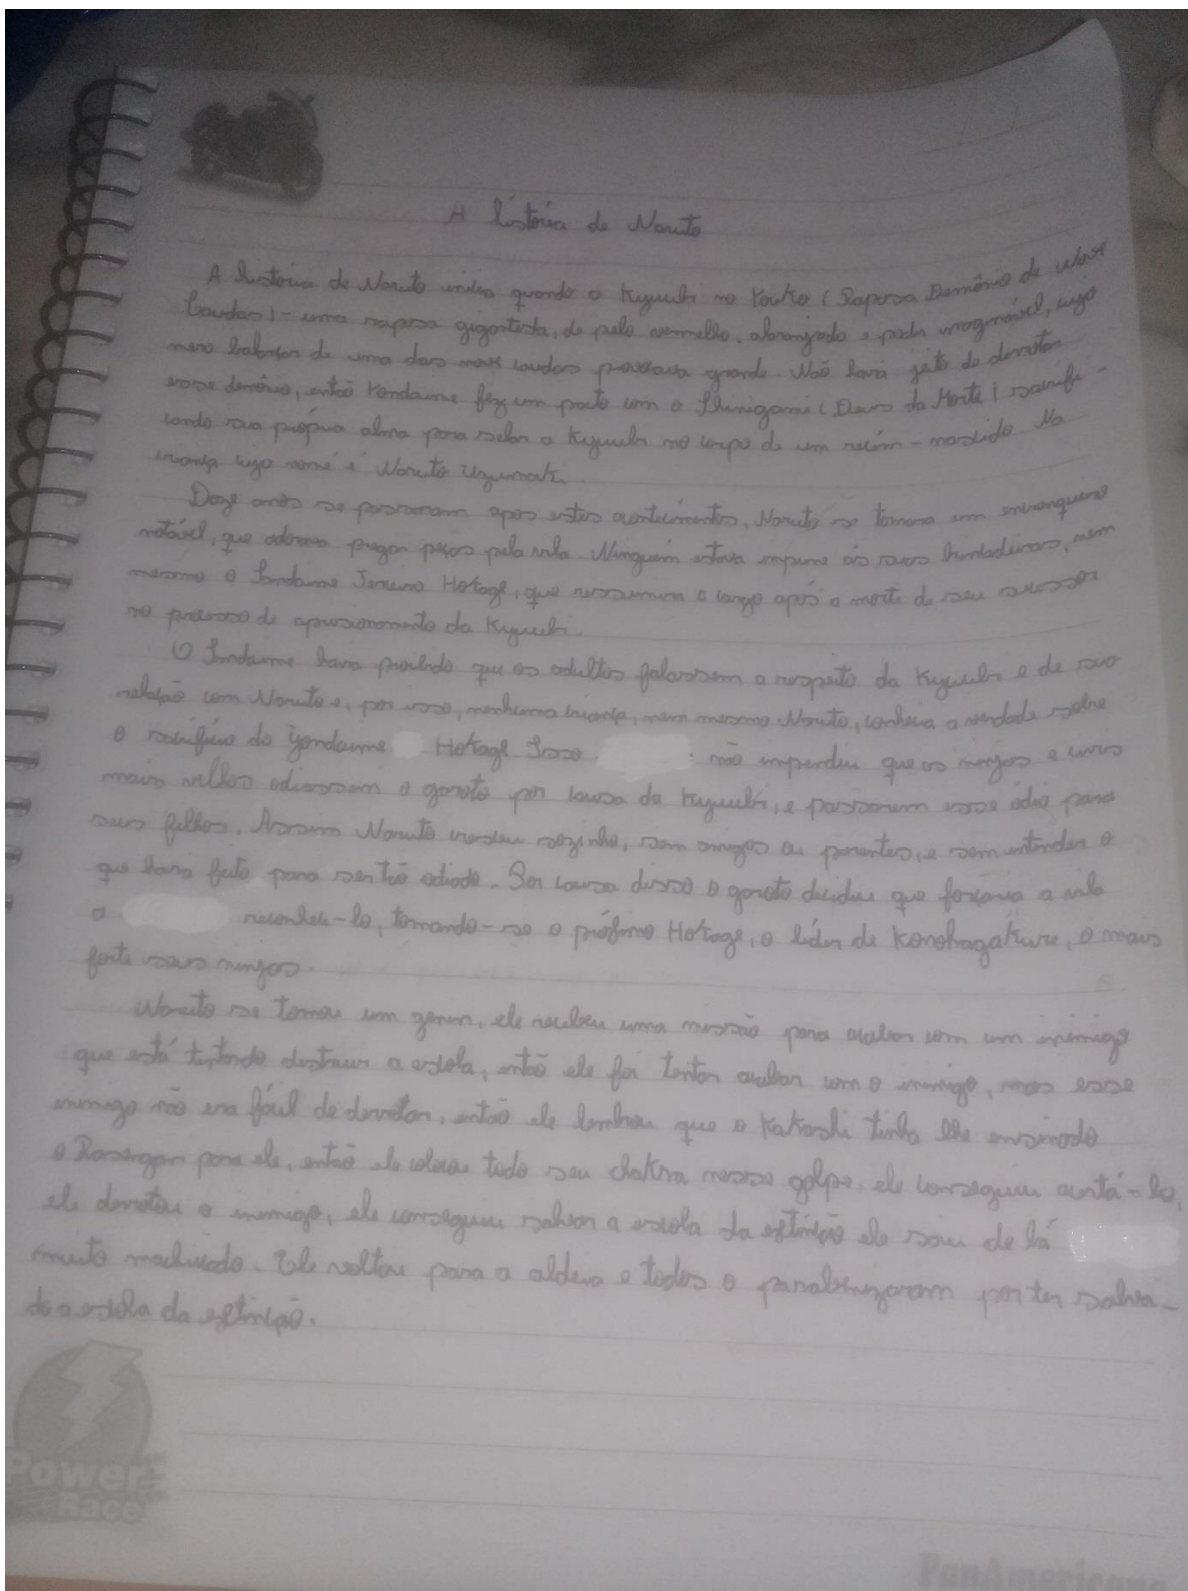 A história de Naruto
A história de Naruto inicia quando o Kyuubi no Youko (Raposa Demônio de Nove
Caudas) - uma raposa gigantesca, de pelo vermelho, alaranjado e poder imaginável, cujo
mero balançar de uma das nove caudas provocava grande. Não havia jeito de derrotar
esse demônio, então Yondaime fez um pacto com o Shinigami (Deus da Morte) sacrifi-
cando sua própria alma para selar a Kyuubi no corpo de um recém-nascido Na
criança cujo nome é Naruto Uzumaki.
Doze anos se passaram após estes acontecimentos. Naruto se tornara um encrenqueiro
notável, que adorava pregar peças pela vila. Ninguém estava impune às suas brincadeiras, nem
mesmo o Sandaime Hokage, que reassumira o cargo após a morte de seu sucessor
no processo de aprisionamento da Kyuubi.
O Sandaime havia proibido que os adultos falassem a respeito da Kyuubi e de sua
relação com Naruto e, por isso, nenhuma criança, nem mesmo Naruto, conhecia a verdade sobre
o sacrifício do Yondaime Hokage Isso não impediu que os ninjas e civis
mais velhos odiassem o garoto por causa da Kyuubi, e passarem esse ódio para
seus filhos. Assim Naruto cresceu sozinho, sem amigos ou parentes, e sem entender o
que havia feito para ser tão odiado. Por causa disso o garoto decidiu que forçaria a vila
a reconhecê-lo, tornando-se o próximo Hokage, o líder de Konohagakure, o mais
forte seus ninjas.
Naruto se tornou um genin, ele recebeu uma missão para acabar com um inimigo
que está tentando destruir a escola, então ele foi tentar acabar com o inimigo, mas esse
inimigo não era fácil de derrotar, então ele lembrou que o Kakashi tinha lhe ensinado
o Rasengan para ele, então ele colocou todo seu chakra nesse golpe, ele conseguiu acertá-lo,
ele derrotou o inimigo, ele conseguiu salvar a escola da extinção ele saiu de lá
muito machucado. Ele voltou para a aldeia e todos o parabenizaram por ter salva-
do a escola da extinção.
Power
Race
PanAmericana